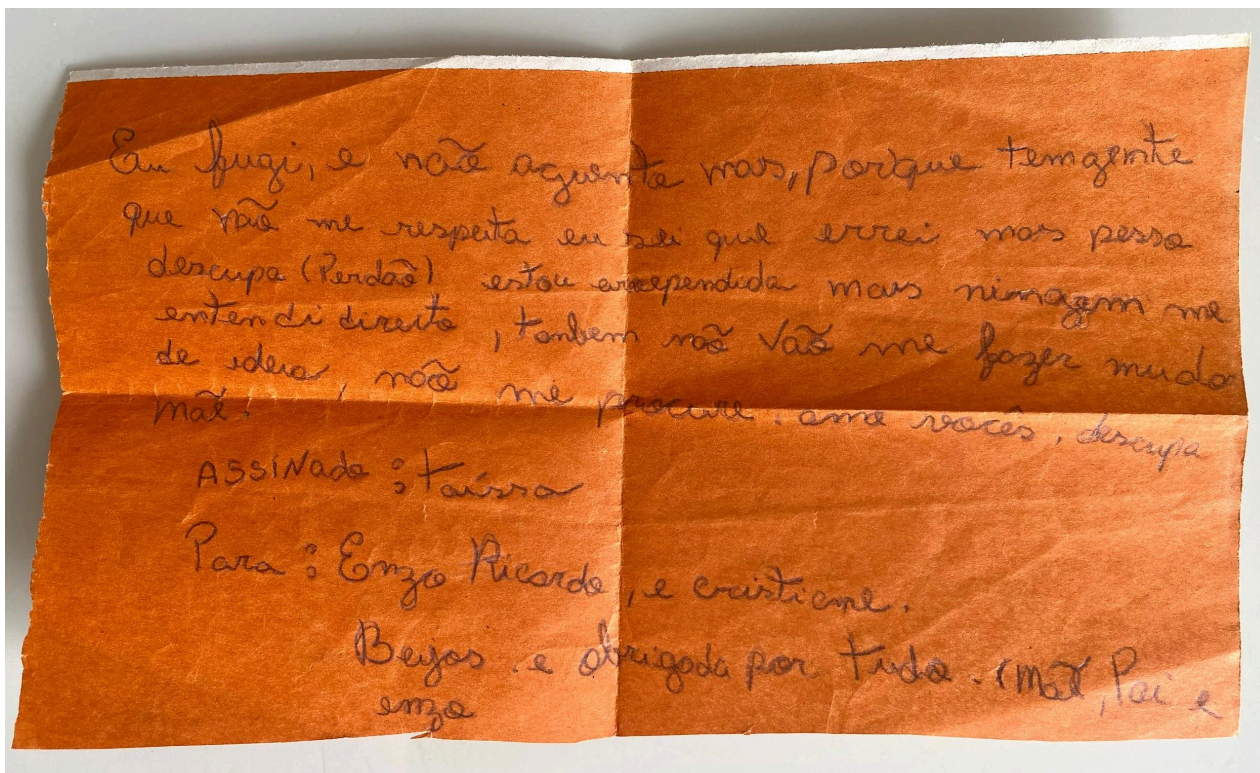 Eu fugi, e não aguento mas, porque temgente
que não me respeita eu sei que errei mas pesso
descupa (Perdão) estou arependida mais nimgem me
entendi direito, tanbem não vão me fazer muda
de ideia, não me procure. amo vocês, descupa
mãe.
ASSiNado: taissa
Para: Enzo Ricardo, e cristiane.
Beijos. e obrigada por tudo. (Mãe, Pai e
enzo